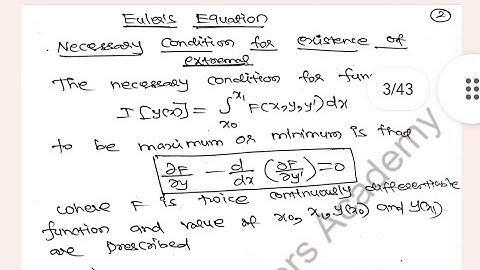 Euler's Equation
2
Necessary Condition for existence of
extremal
The necessary condition for func
I[y(x)] = ∫_{x0}^{x1} F(x,y,y')dx
3/43
to be maximum or minimum is that
∂F/∂y - d/dx (∂F/∂y') = 0
where F is twice continuously differentiable
function and value of x0, x1, y(x0) and y(x1)
are Prescribed
ers Academy